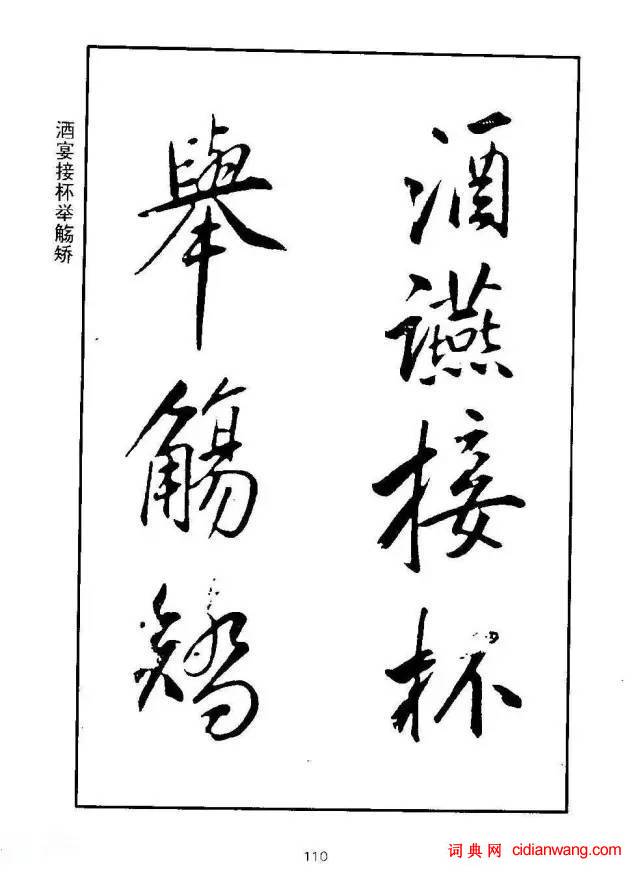 酒讌接杯
舉觴矯
酒宴接杯举觞矫
110
词典网 cidianwang.com